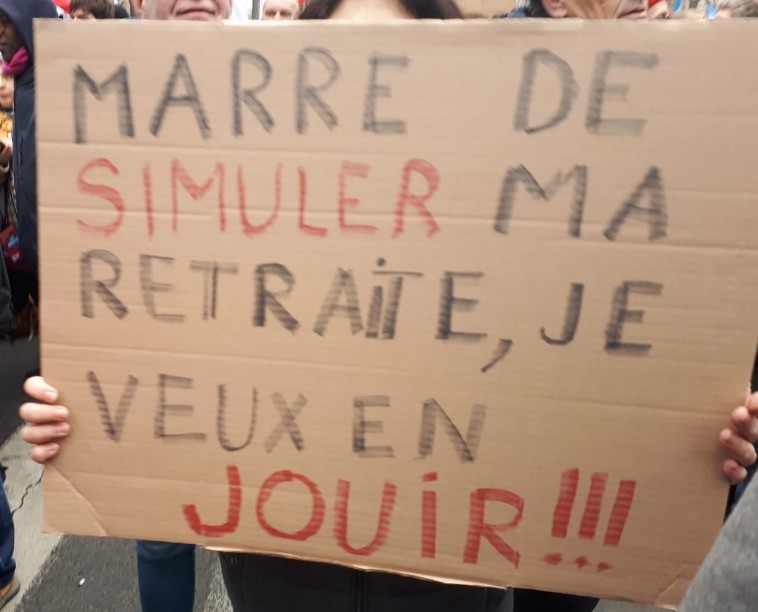 MARRE DE
SIMULER MA
RETRAITE, JE
VEUX EN
JOUIR!!!